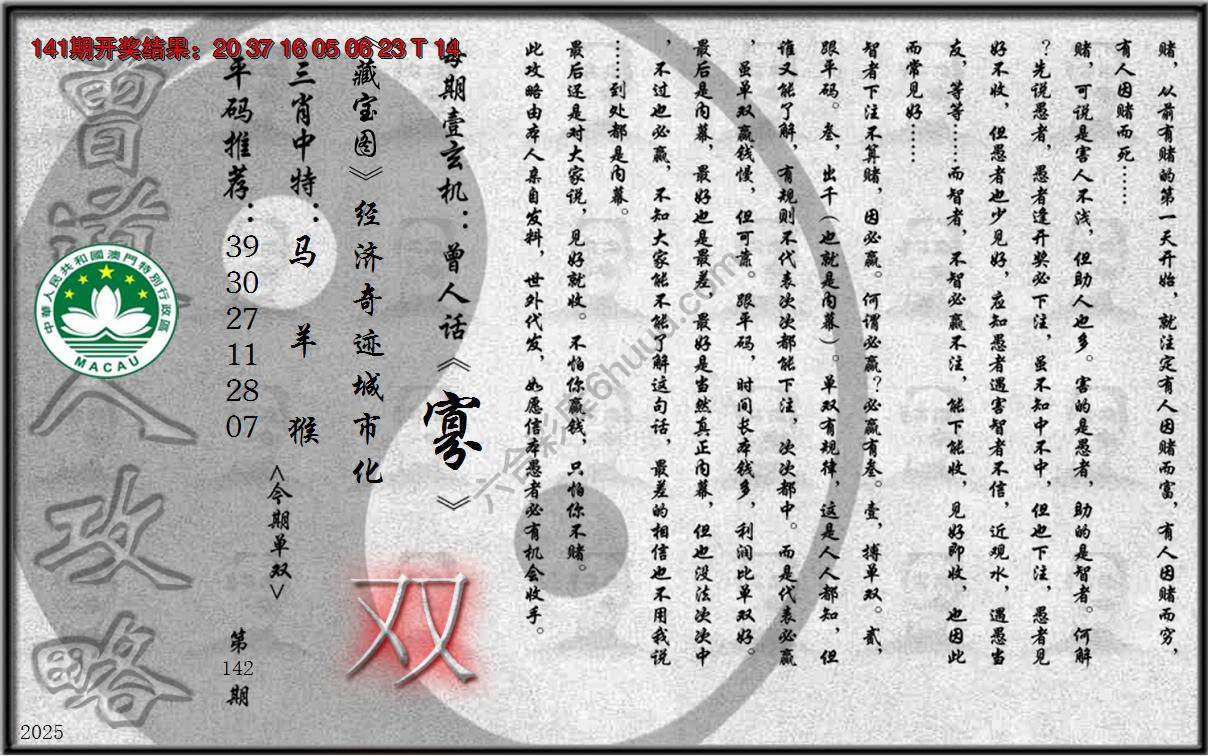 141期开奖结果：20 37 16 05 06 23 T 14
赌，从前有赌的第一天开始，就注定有人因赌而富，有人因赌而穷，
有人因赌而死……
赌，可说是害人不浅，但助人也多。害的是愚者，助的是智者。何解
？先说愚者，愚者逢开奖必下注，虽不知中不中，但也下注，愚者见
好不收，但愚者也少见好，应知愚者遇害智者不信，近观水，遇愚当
友，等等……而智者，不智必赢不注，能下能收，见好即收，也因此
而常见好……
智者下注不算赌，因必赢。何谓必赢？必赢有叁。壹，搏单双。贰，
跟平码。叁，出千（也就是内幕）。单双有规律，这是人人都知，但
谁又能了解，有规则不代表次次都能下注，次次都中。而是代表必赢
，虽单双赢钱慢，但可靠。跟平码，时间长本钱多，利润比单双好。
最后是内幕，最好也是最差，最好是当然真正内幕，但也没法次次中
，不过也必赢，不知大家能不能了解这句话，最差的相信也不用我说
……到处都是内幕。
最后还是对大家说，见好就收。不怕你赢钱，只怕你不赌。
此攻略由本人亲自发料，世外代发，如愿信本愚者必有机会收手。
每期壹玄机：曾人话《寡》
《藏宝图》经济奇迹城市化
双
三肖中特：马 羊 猴
<今期单双>
平码推荐：39 30 27 11 28 07
第142期
曾道人攻略
中華人民共和國澳門特別行政區
MACAU
六合彩库6huuu.com
2025